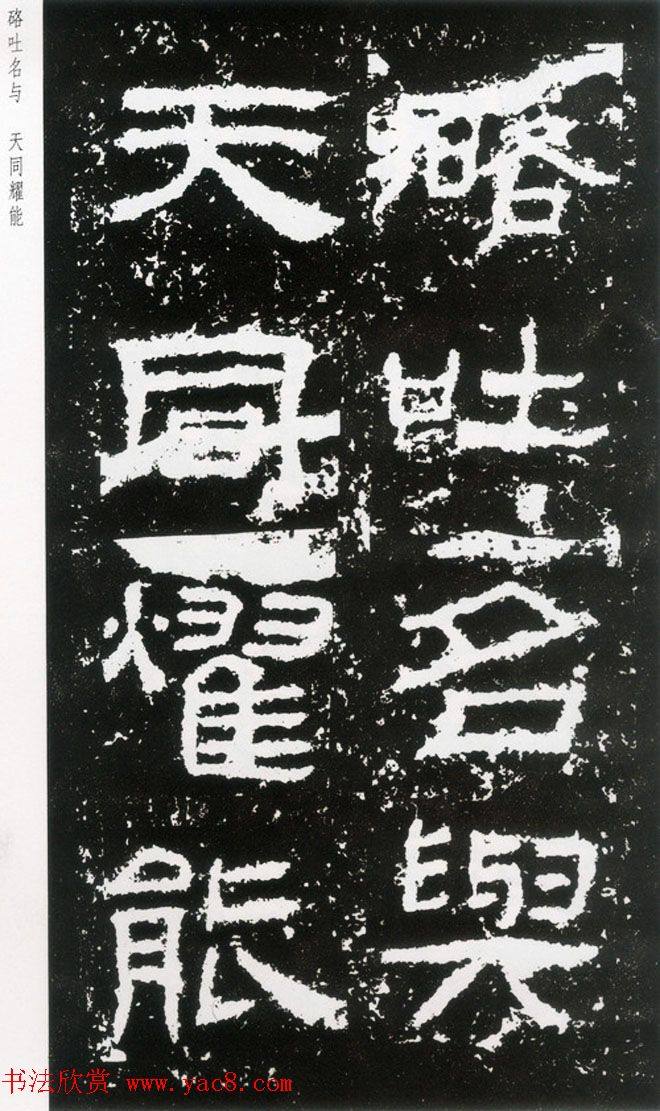 吐名與
天同燿能
硌吐名与 天同耀能
书法欣赏 www.yac8.com